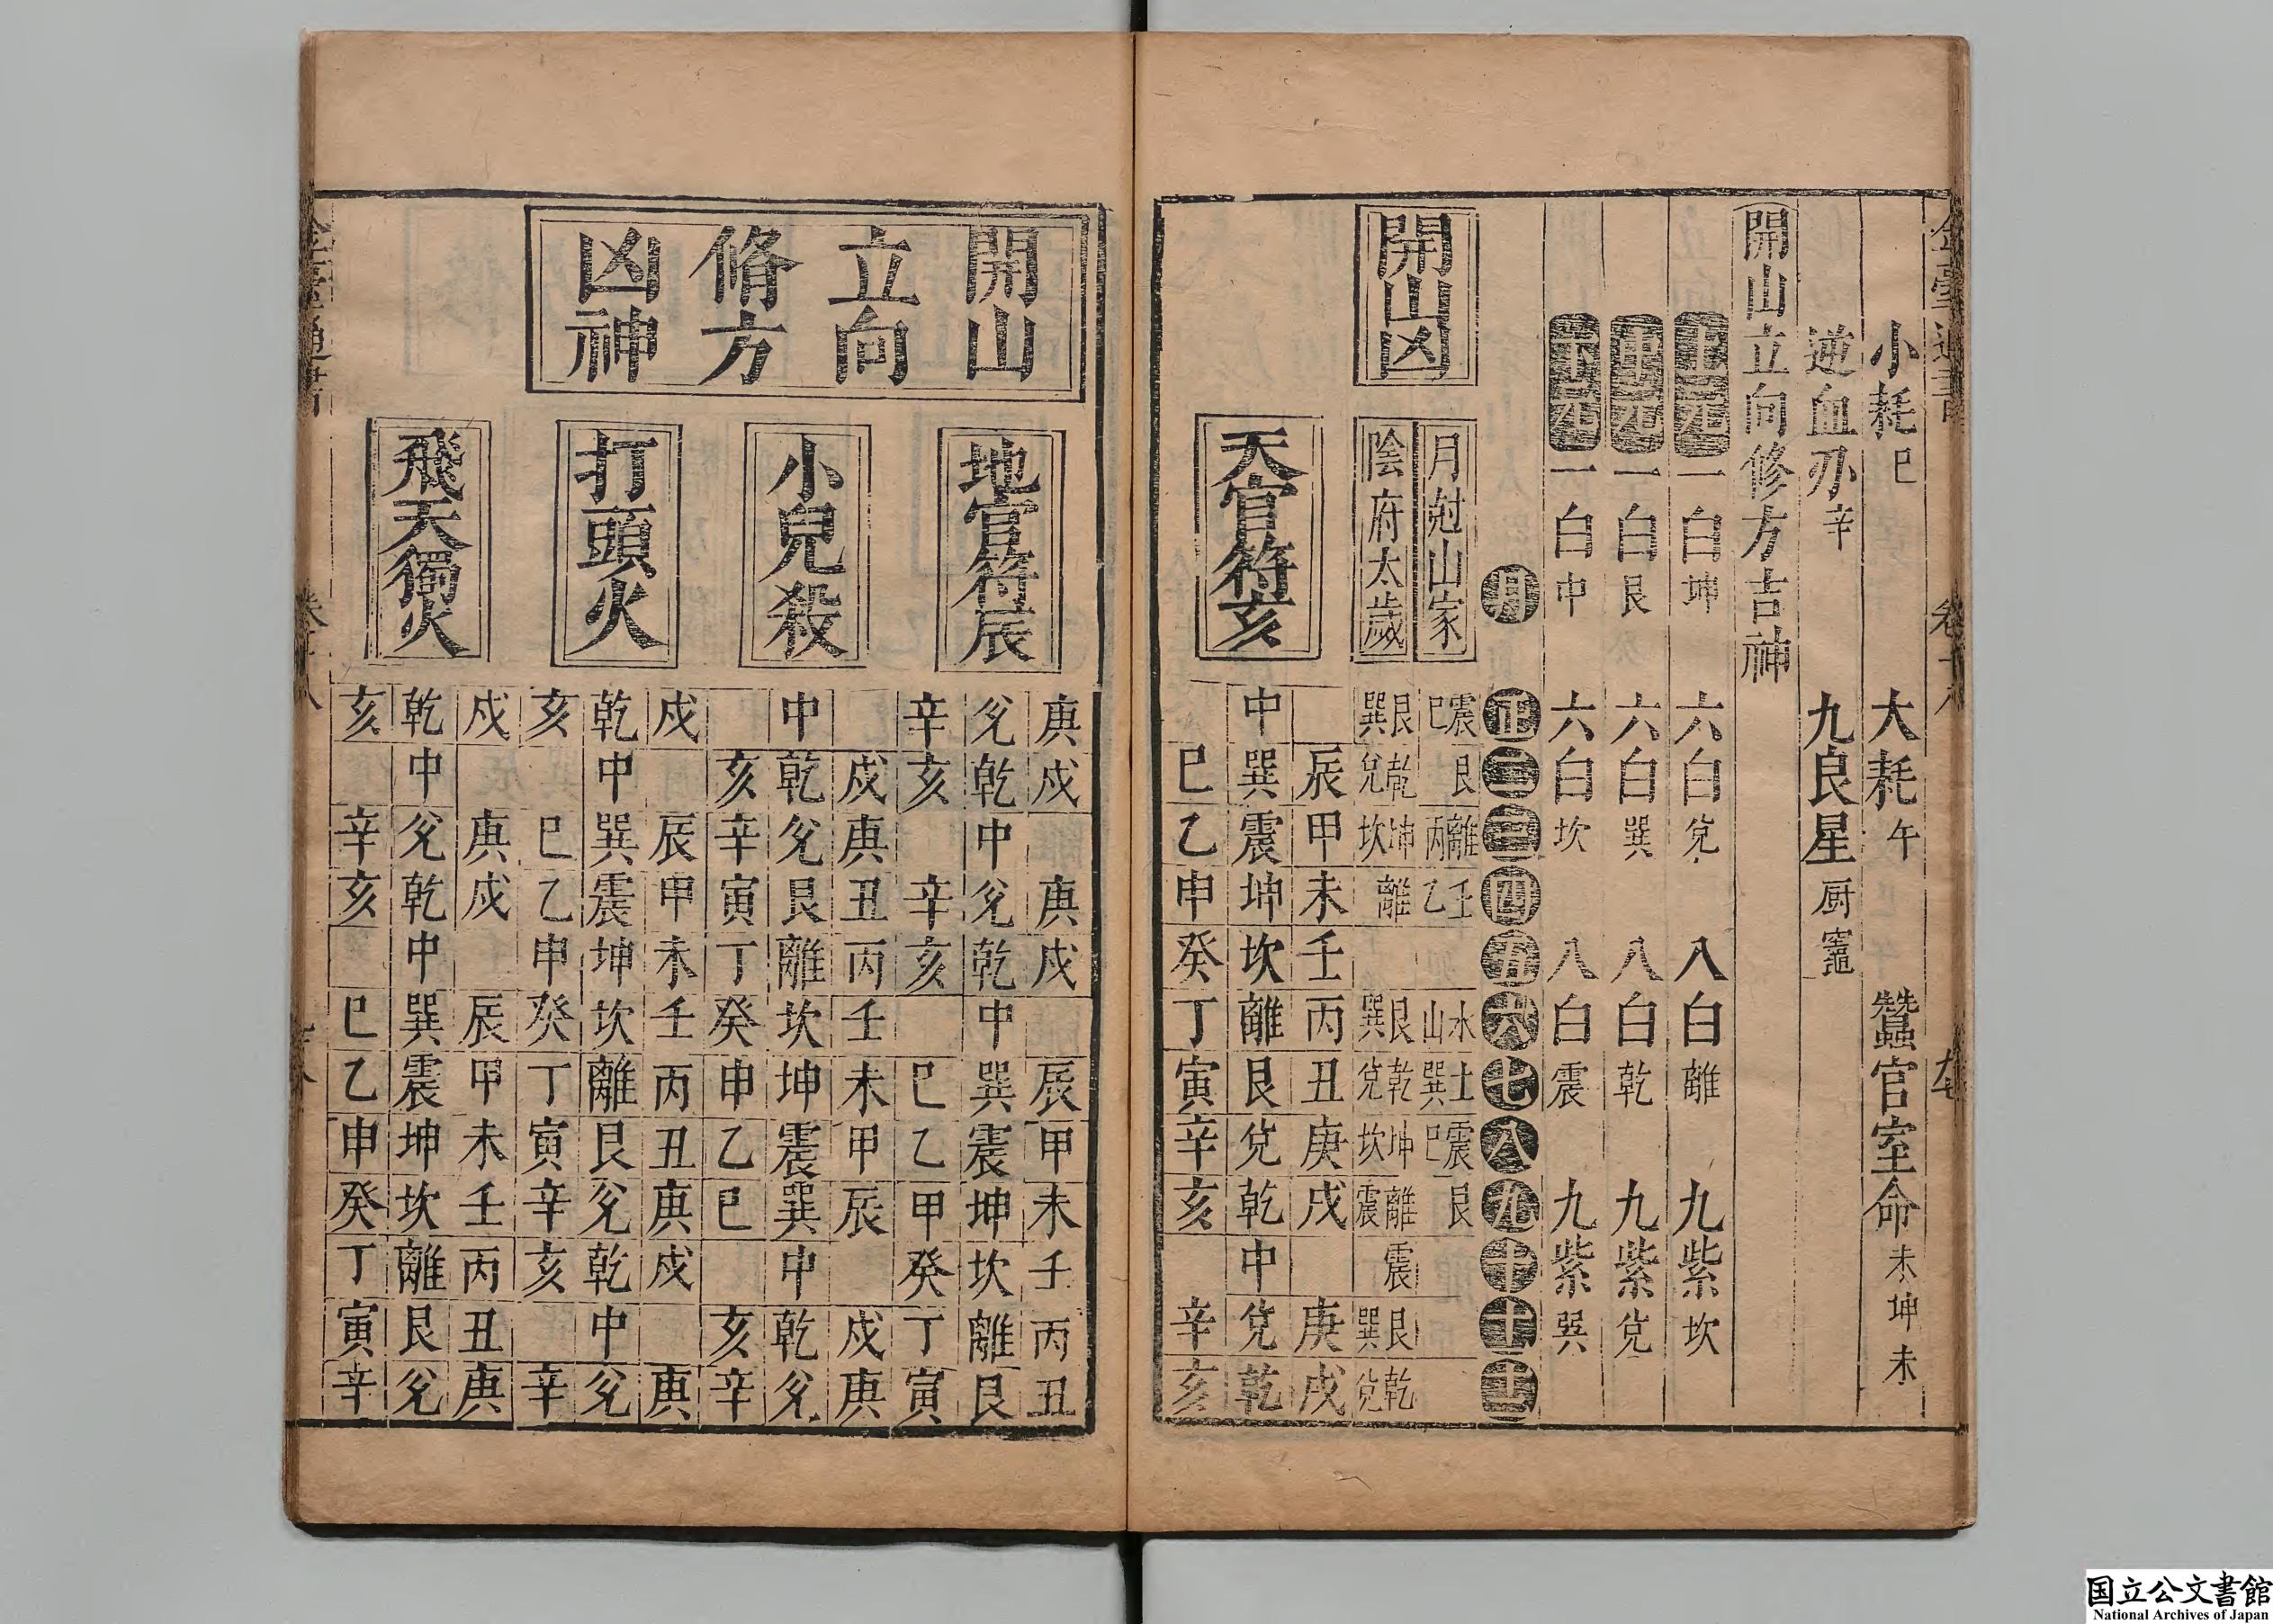 小耗巳 大耗午 蠶官室命未坤未
逆血刃辛 九良星厨竈
開山立向修方吉神
上元一白坤 六白兌 八白離 九紫坎
中元一白艮 六白巽 八白乾 九紫兌
下元一白中 六白坎 八白震 九紫巽
月 正二三四五六七八九十十一十二
開山凶
月尅山家 震巳 艮 離丙 壬乙 水山 土巽 震巳 艮
陰府太歲 艮巽 乾兌 坤坎 離 艮巽 乾兌 坤坎 離震 震 艮巽 乾兌
天官符亥
辰甲未壬丙丑庚戌 庚戌
中巽震坤坎離艮兌乾中兌乾
巳乙申癸丁寅辛亥 辛亥
開山
立向
脩方
凶神
地官符辰
庚戌 庚戌 辰甲未壬丙丑
兌乾中兌乾中巽震坤坎離艮
辛亥 辛亥 巳乙甲癸丁寅
小兒殺
戌庚丑丙壬未甲辰 戌庚
中乾兌艮離坎坤震巽中乾兌
亥辛寅丁癸申乙巳 亥辛
打頭火
戌 辰甲未壬丙丑庚戌 庚
乾中巽震坤坎離艮兌乾中兌
亥 巳乙申癸丁寅辛亥 辛
飛天獨火
戌 庚戌 辰甲未壬丙丑庚
乾中兌乾中巽震坤坎離艮兌
亥 辛亥 巳乙申癸丁寅辛
国立公文書館
National Archives of Japan